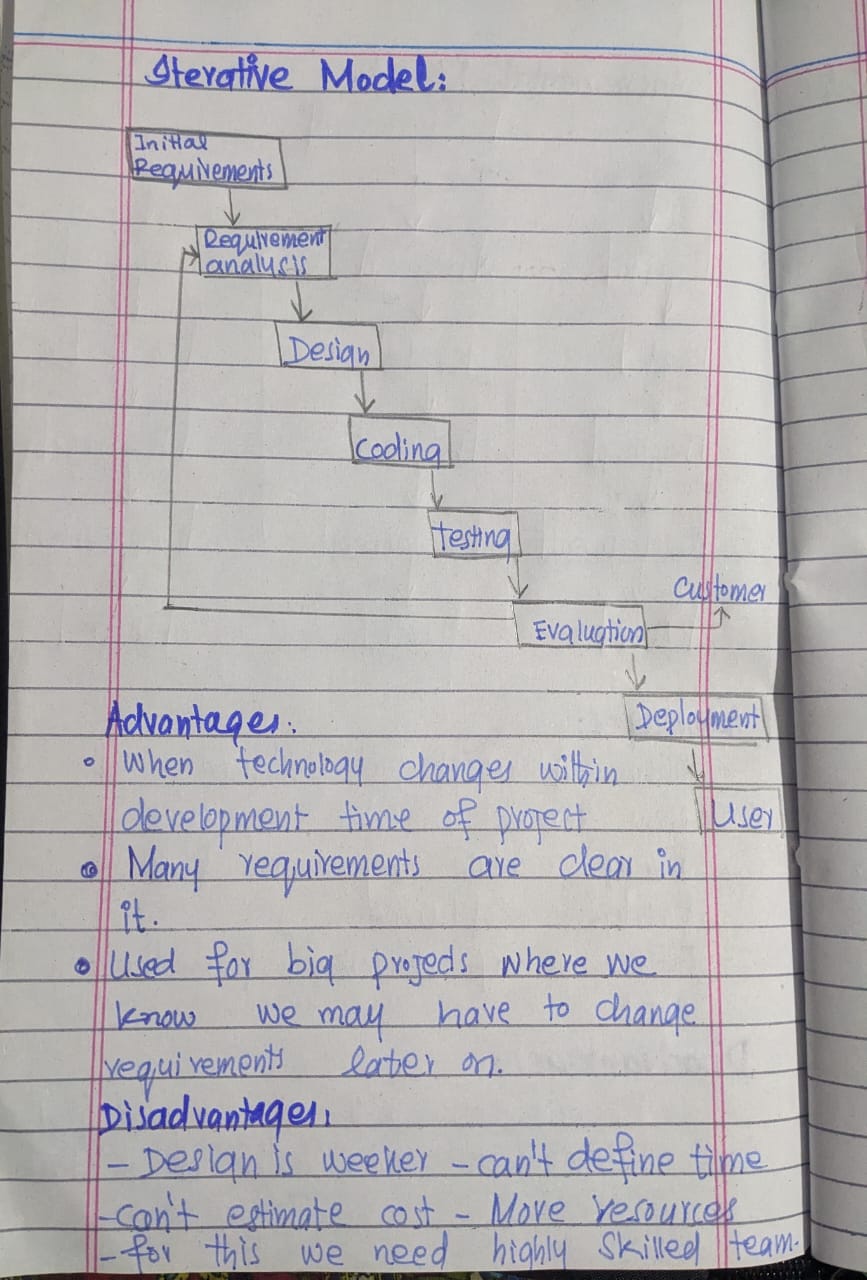 Iterative Model:
Initial
Requirements
Requirement
analysis
Design
Coding
testing
Customer
Evaluation
Deployment
User
Advantages:
When technology changes within
development time of project
Many requirements are clear in
it.
Used for big projects where we
know we may have to change
requirements later on.
Disadvantages:
- Design is weeker - can't define time
- Can't estimate cost - More resources
- for this we need highly skilled team.